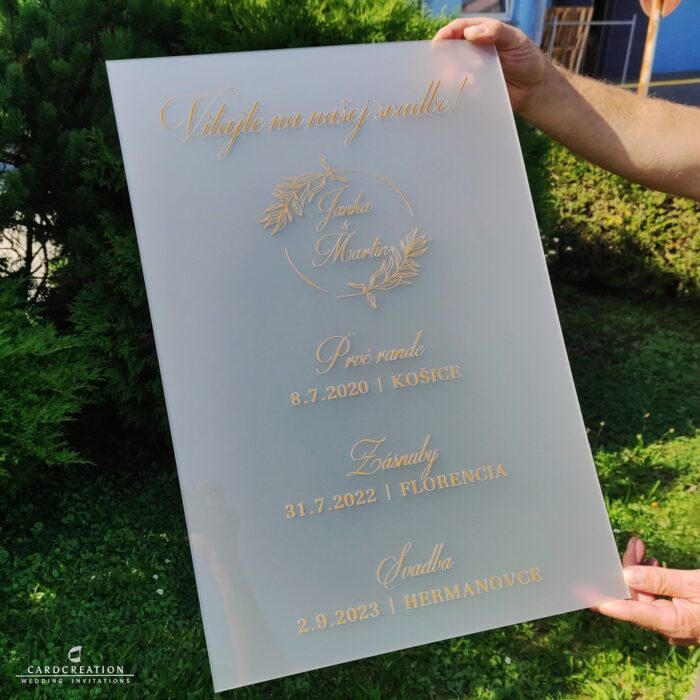 Vitajte na našej svadbe!
Janka
&
Martin
Prvé rande
8.7.2020 | KOŠICE
Zásnuby
31.7.2022 | FLORENCIA
Svadba
2.9.2023 | HERMANOVCE
CARDCREATION
WEDDING INVITATIONS